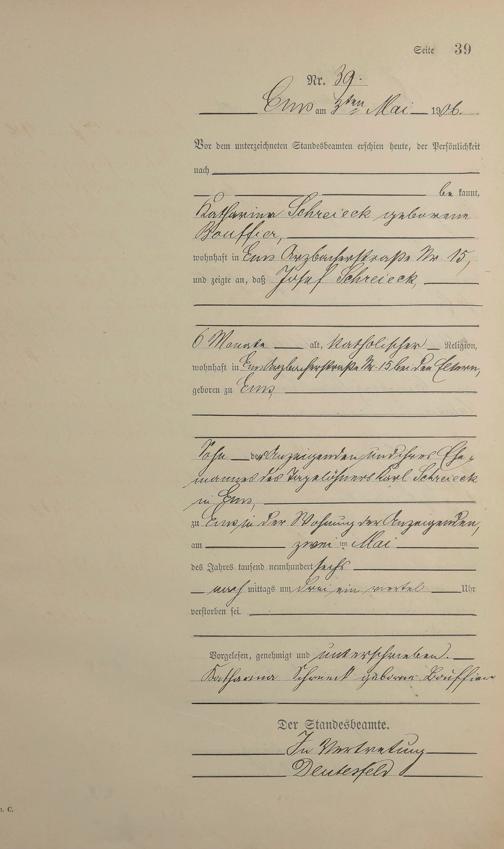 Seite 39
Nr. 39.
Ems am 3ten Mai 1906.
Vor dem unterzeichneten Standesbeamten erschien heute, der Persönlichkeit
nach
be kannt,
Katharina Schreieck geborene
Bouffier,
wohnhaft in Ems Arzbacherstraße Nr 15,
und zeigte an, daß Josef Schreieck,
6 Monate alt, katholischer Religion,
wohnhaft in Ems Arzbacherstraße Nr. 15 bei den Eltern,
geboren zu Ems
Sohn der Anzeigenden und ihres Ehe-
mannes des Tagelöhners Karl Schreieck
in Ems,
zu Ems in der Wohnung der Anzeigenden,
am zwei ten Mai
des Jahres tausend neunhundert sechs
nach mittags um drei ein viertel Uhr
verstorben sei.
Vorgelesen, genehmigt und unterschrieben.
Katharina Schreieck geborene Bouffier
Der Standesbeamte.
In Vertretung
C.